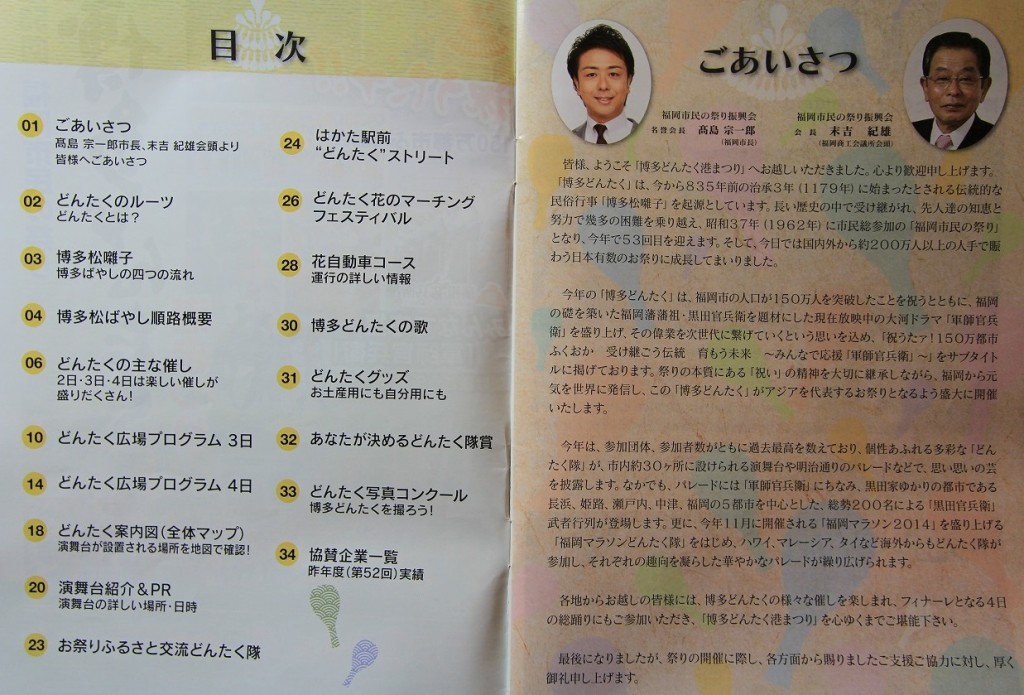 目次
01 ごあいさつ
髙島 宗一郎市長、末吉 紀雄会頭より
皆様へごあいさつ
02 どんたくのルーツ
どんたくとは？
03 博多松囃子
博多ばやしの四つの流れ
04 博多松ばやし順路概要
06 どんたくの主な催し
2日・3日・4日は楽しい催しが
盛りだくさん！
10 どんたく広場プログラム 3日
14 どんたく広場プログラム 4日
18 どんたく案内図（全体マップ）
演舞台が設置される場所を地図で確認！
20 演舞台紹介＆PR
演舞台の詳しい場所・日時
23 お祭りふるさと交流どんたく隊
24 はかた駅前
“どんたく”ストリート
26 どんたく花のマーチング
フェスティバル
28 花自動車コース
運行の詳しい情報
30 博多どんたくの歌
31 どんたくグッズ
お土産用にも自分用にも
32 あなたが決めるどんたく隊賞
33 どんたく写真コンクール
博多どんたくを撮ろう！
34 協賛企業一覧
昨年度（第52回）実績
ごあいさつ
福岡市民の祭り振興会
名誉会長 髙島 宗一郎
（福岡市長）
福岡市民の祭り振興会
会 長 末吉 紀雄
（福岡商工会議所会頭）
皆様、ようこそ「博多どんたく港まつり」へお越しいただきました。心より歓迎申し上げます。
「博多どんたく」は、今から835年前の治承3年（1179年）に始まったとされる伝統的な
民俗行事「博多松囃子」を起源としています。長い歴史の中で受け継がれ、先人達の知恵と
努力で幾多の困難を乗り越え、昭和37年（1962年）に市民総参加の「福岡市民の祭り」
となり、今年で53回目を迎えます。そして、今日では国内外から約200万人以上の人手で賑
わう日本有数のお祭りに成長してまいりました。
今年の「博多どんたく」は、福岡市の人口が150万人を突破したことを祝うとともに、福岡
の礎を築いた福岡藩藩祖・黒田官兵衛を題材にした現在放映中の大河ドラマ「軍師官兵
衛」を盛り上げ、その偉業を次世代に繋げていくという思いを込め、「祝うたァ！150万都市
ふくおか　受け継ごう伝統　育もう未来　～みんなで応援「軍師官兵衛」～」をサブタイト
ルに掲げております。祭りの本質にある「祝い」の精神を大切に継承しながら、福岡から元
気を世界に発信し、この「博多どんたく」がアジアを代表するお祭りとなるよう盛大に開催
いたします。
今年は、参加団体、参加者数がともに過去最高を数えており、個性あふれる多彩な「どん
たく隊」が、市内約30ヶ所に設けられる演舞台や明治通りのパレードなどで、思い思いの芸
を披露します。なかでも、パレードには「軍師官兵衛」にちなみ、黒田家ゆかりの都市である
長浜、姫路、瀬戸内、中津、福岡の5都市を中心とした、総勢200名による「黒田官兵衛」
武者行列が登場します。更に、今年11月に開催される「福岡マラソン2014」を盛り上げる
「福岡マラソンどんたく隊」をはじめ、ハワイ、マレーシア、タイなど海外からもどんたく隊が
参加し、それぞれの趣向を凝らした華やかなパレードが繰り広げられます。
各地からお越しの皆様には、博多どんたくの様々な催しを楽しまれ、フィナーレとなる4日
の総踊りにもご参加いただき、「博多どんたく港まつり」を心ゆくまでご堪能下さい。
最後になりましたが、祭りの開催に際し、各方面から賜りましたご支援ご協力に対し、厚く
御礼申し上げます。